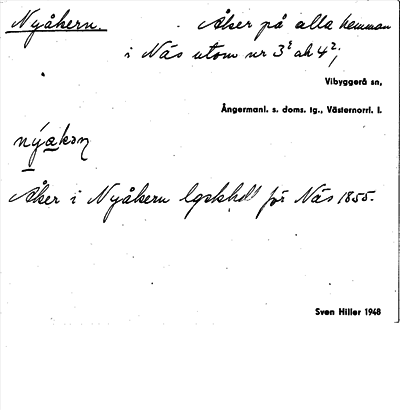 Nyåkern. Åker på alla hemman
i Näs utom nr 3² och 4²;
Vibyggerå sn,
Ångermanl. s. doms. tg., Västernorrl. l.
nýa̲kəɳ
Åker i Nyåkern lgskhdl för Näs 1855.
Sven Hiller 1948